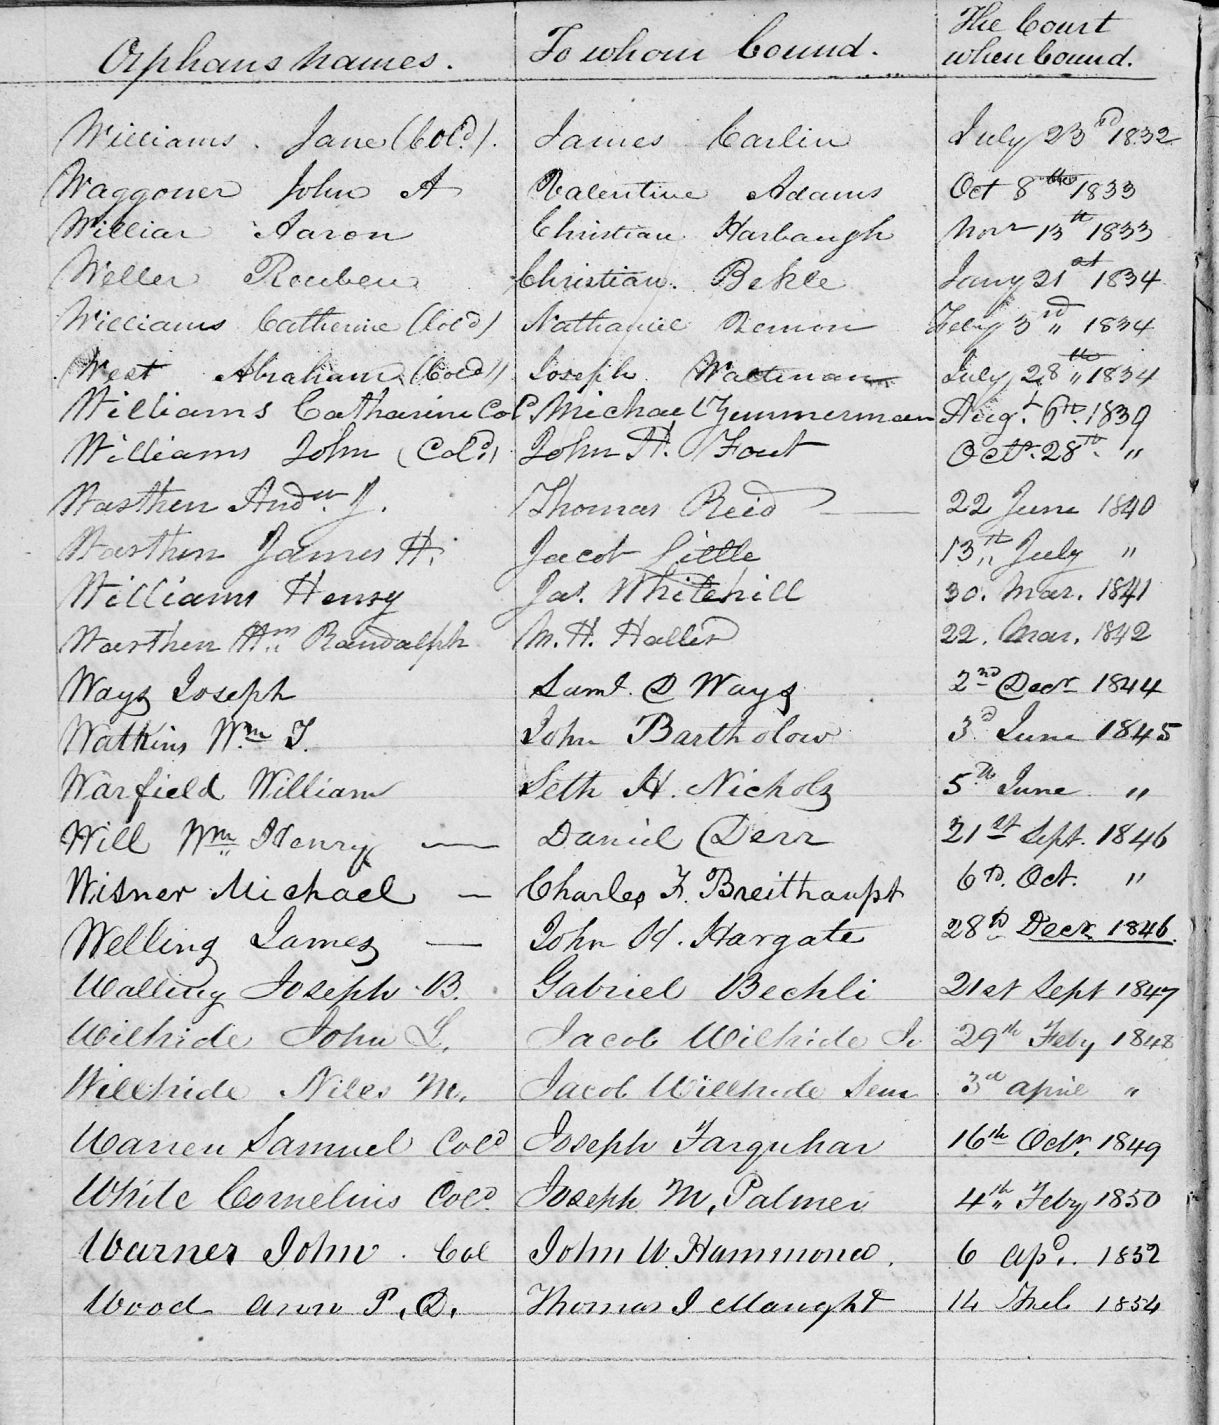 Orphans names. To whom bound. The Court
when bound.
Williams. Jane (Col'd). James Carlin July 23rd 1832
Waggoner John A Valentine Adams Oct 8th 1833
Williar Aaron Christian Harbaugh Novr 13th 1833
Weller Reuben Christian. Bekle Jany 21st 1834
Williams Catherine (Col'd) Nathaniel Feby 3rd 1834
West Abraham (Col'd) Joseph Waltman July 28th 1834
Williams Catharine Col'd. Michael Zimmerman Augt. 6th. 1839
Williams John (Col'd) John H. Fout Octr. 28th. "
Warthen Andw. J. Thomas Reid 22 June 1840
Warthen James H. Jacob Little 13th July "
Williams Henry Jas. Whitehill 30. Mar. 1841
Warthen Wm. Randalph M. H. Haller 22. Mar. 1842
Ways Joseph Saml. D Ways 2nd Decr 1844
Watkins Wm T. John Bartholow 3d June 1845
Warfield William Seth H. Nichols 5th June "
Will Wm Henry — Daniel Derr 21st Sept. 1846
Wisner Michael — Charles F. Breithaupt 6th. Oct. "
Welling James — John H. Hargate 28th Decr 1846.
Walling Joseph B. Gabriel Bechli 21st Sept 1847
Wilhide John L. Jacob Wilhide Jr 29th Feby 1848
Willhide Niles M. Jacob Willhide Senr 3rd april "
Warren Samuel Col'd Joseph Farquhar 16th Octr. 1849
White Cornelius Col'd. Joseph M. Palmer 4th Feby 1850
Warner John. Col John W. Hammond. 6 Apl. 1852
Wood Ann P. Thomas J Maught 14 Feb 1854